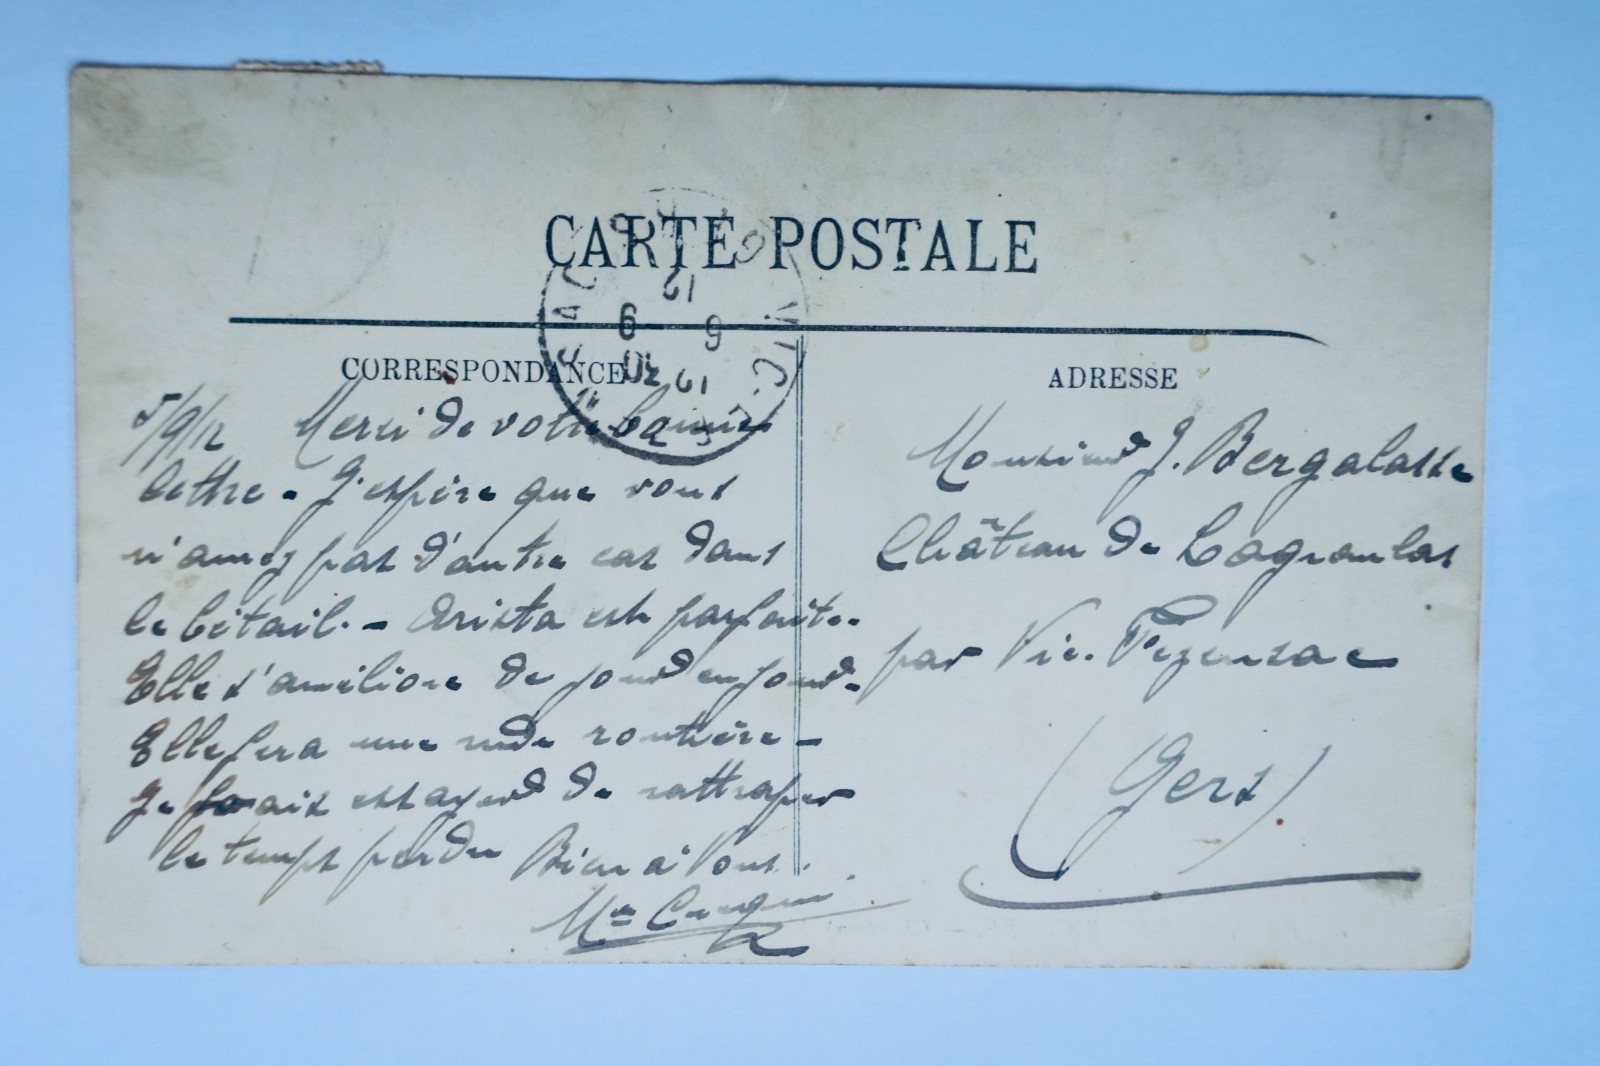 CARTE POSTALE
CORRESPONDANCE
ADRESSE
5/9/12 Merci de votre bonne
lettre - J'espère que vous
n'aurez pas d'autre cas dans
le bétail. - Arista est parfaite.
Elle s'améliore de jour en jour.
Elle fera une rude routière -
Je vais essayer de rattraper
le temps perdu Bien à vous.
Monsieur J. Bergalasse
Château de Lagraulas
par Vic. Fezensac
(Gers)